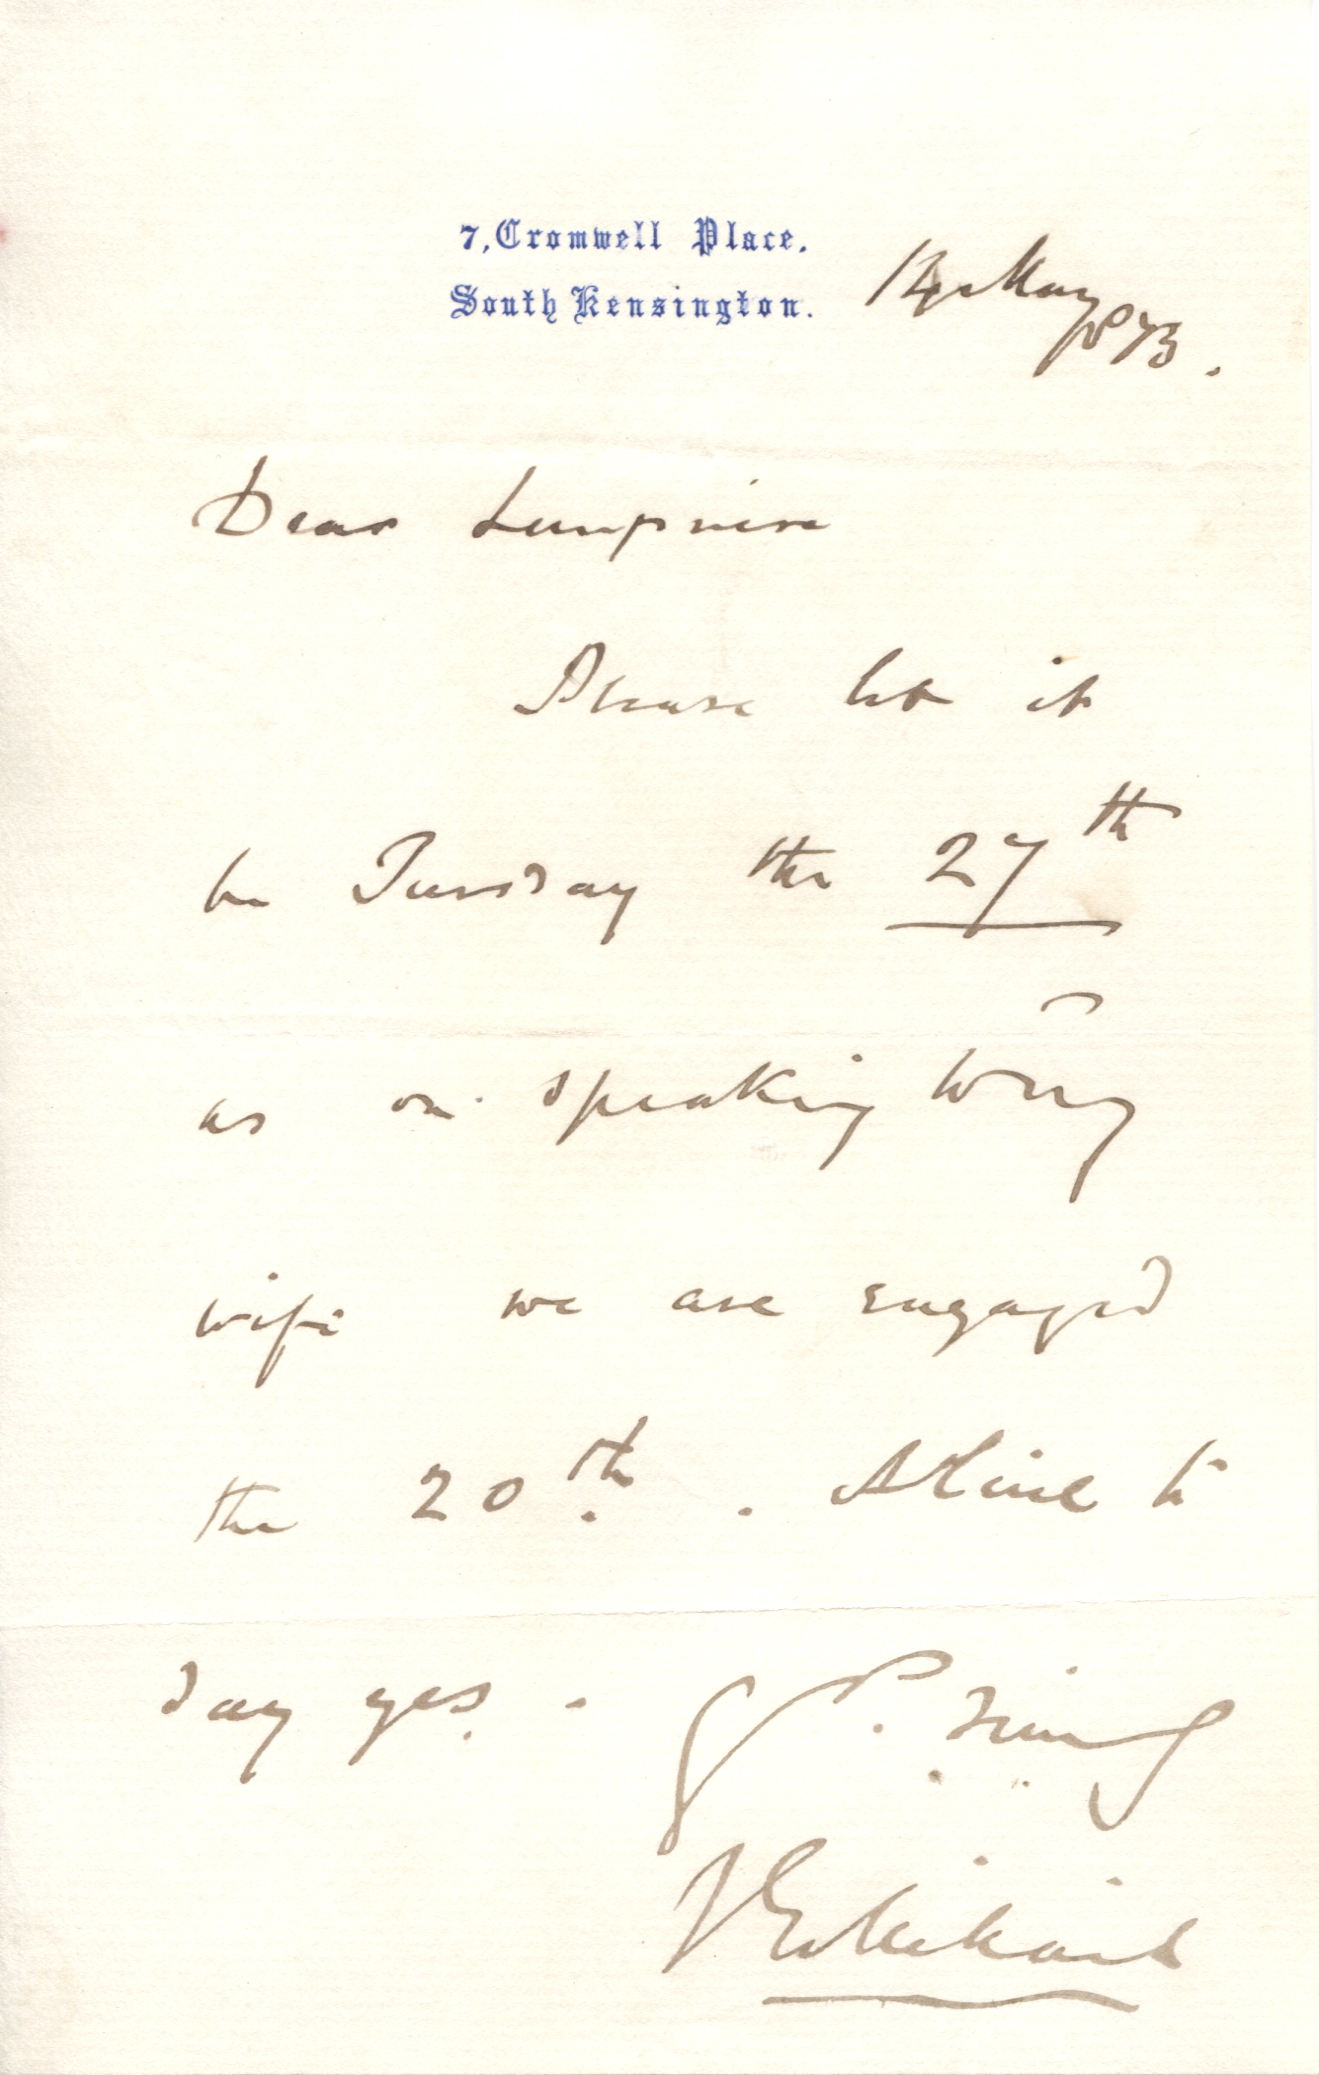 7, Cromwell Place.
South Kensington.
14 May
1873.
Dear
Please let it
be Tuesday the 27th
as on speaking to my
wife we are engaged
the 20th. to
say yes.